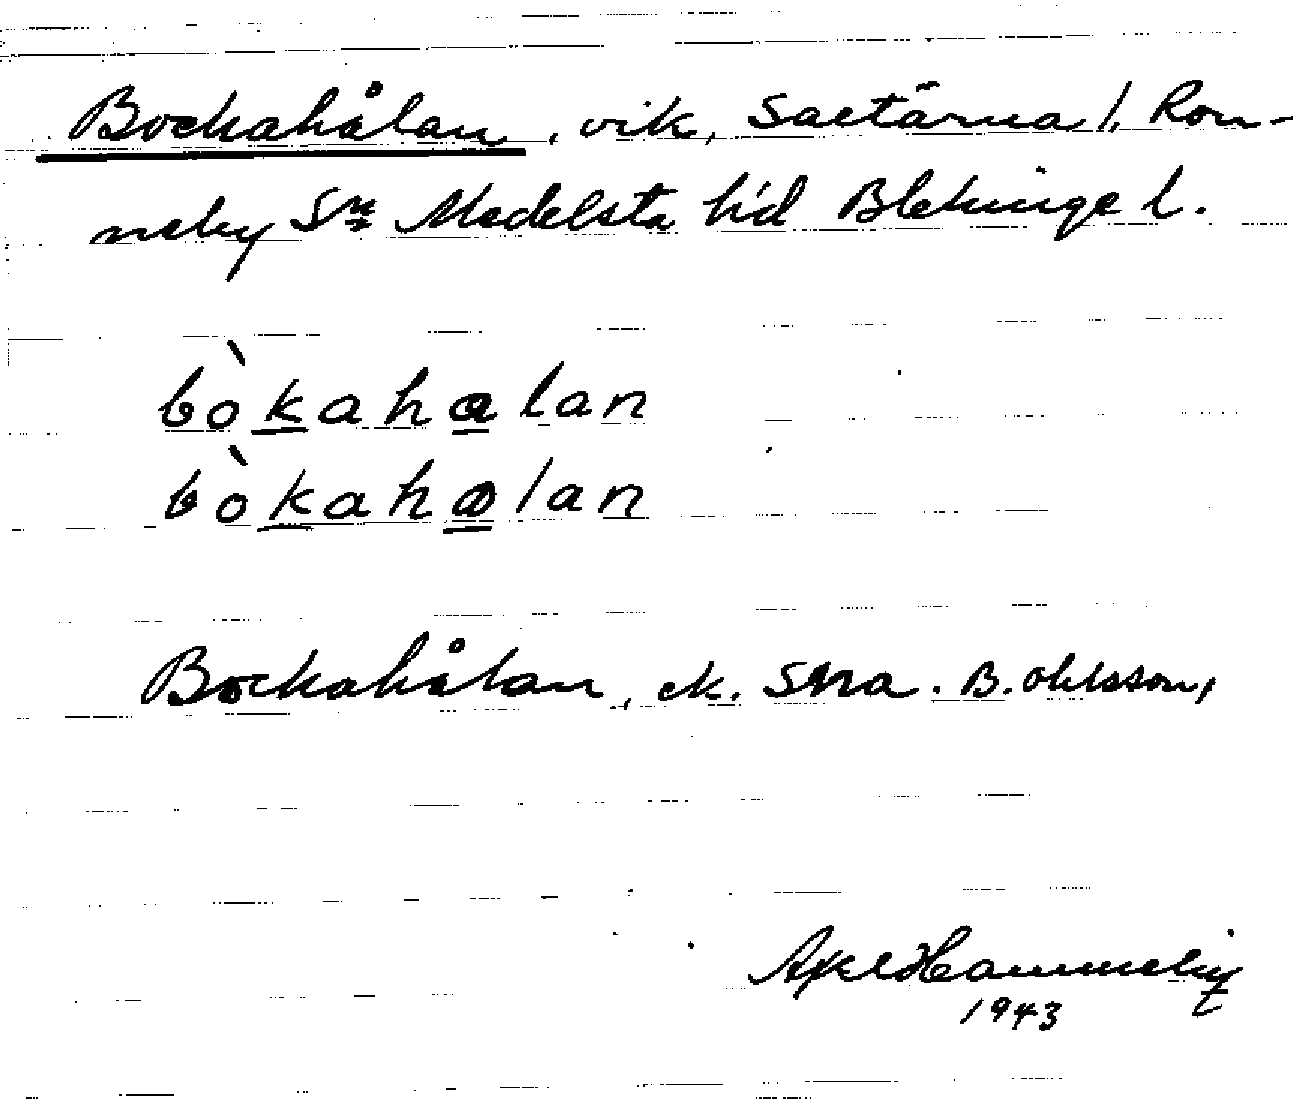 Bockahålan, vik, Saltärna l. Ron-
neby Sn Medelsta hd Blekinge l.
bòkahalan
bòkahalan
Bockahålan, ek. Sna. B. Ohlsson,
Axel Hammelin
1943